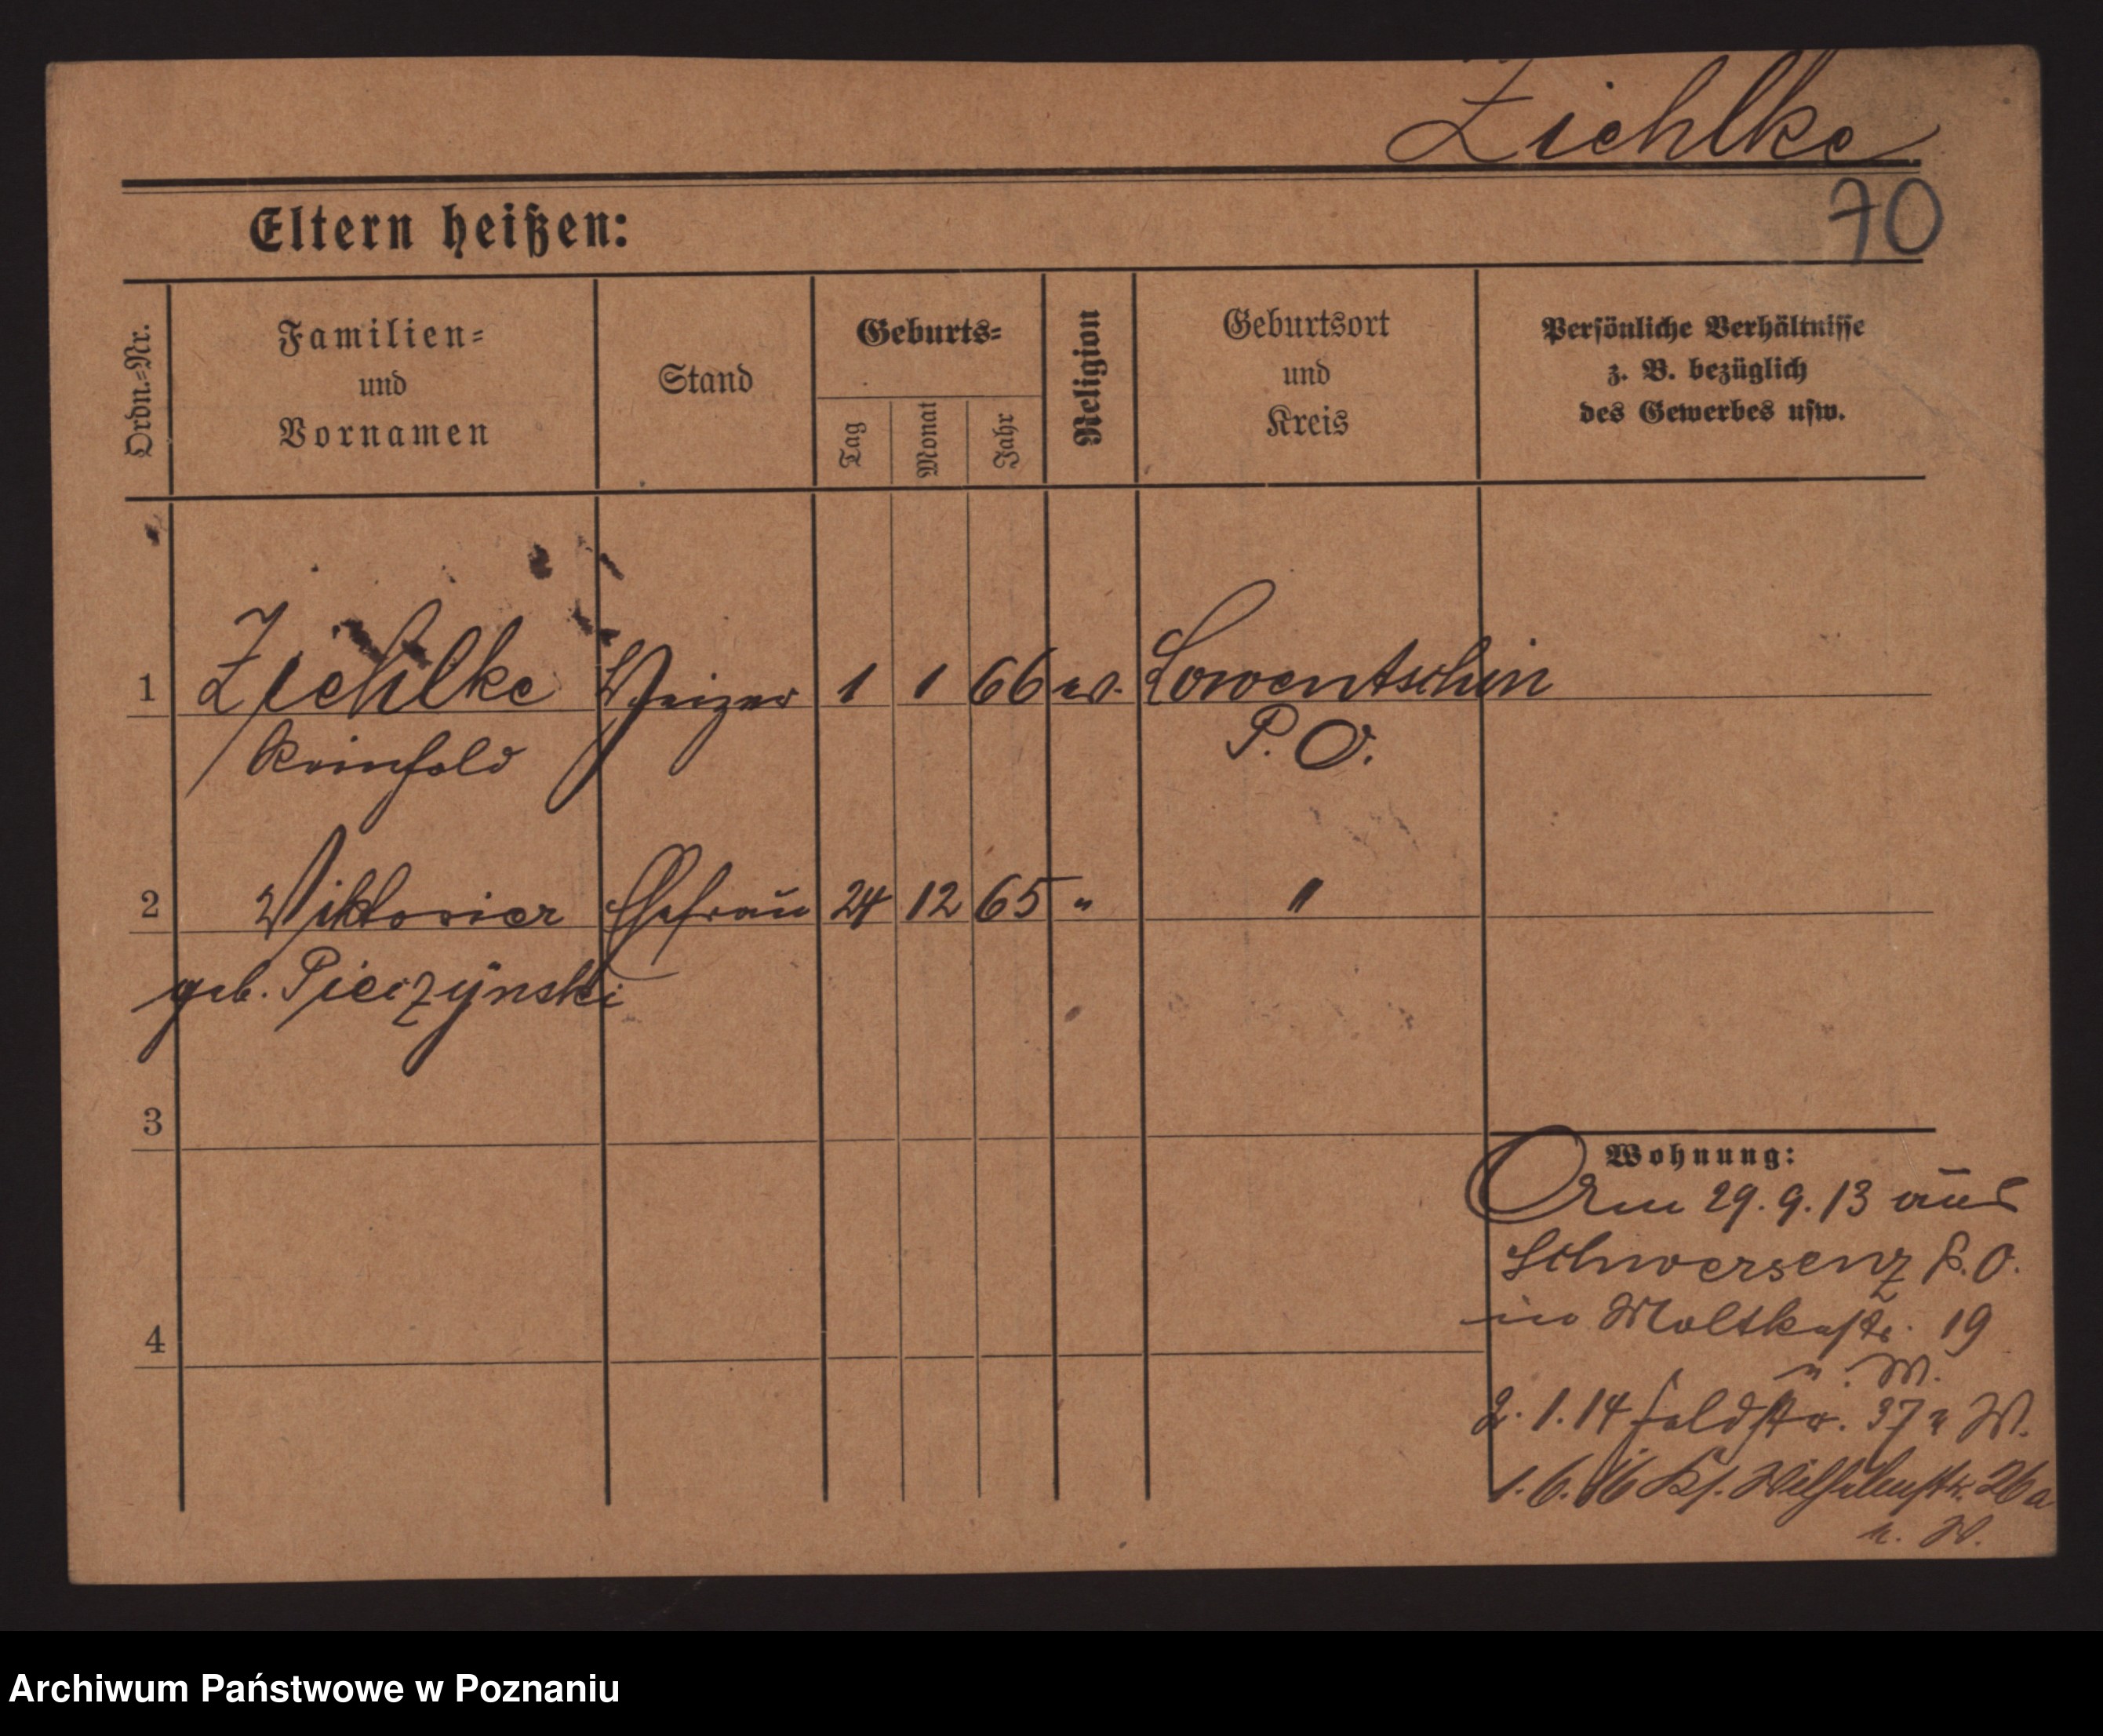 Ziehlke
70
Eltern heißen:
Ordn.=Nr.
Familien=
und
Vornamen
Stand
Geburts=
Tag
Monat
Jahr
Religion
Geburtsort
und
Kreis
Persönliche Verhältnisse
z. B. bezüglich
des Gewerbes usw.
1 Ziehlke Heizer 1 1 66 ev. Lowentschin
Reinhold P. O.
2 Viktoria Ehefrau 24 12 65 " "
geb. Pierzynski
3
Wohnung:
Am 29. 9. 13 aus
Schwersenz P. O.
in Moltkestr. 19
4
n. W.
2. 1. 14 Feldstr. 37 n W.
1. 6. 16 Ks. Wilhelmstr. 26 a
n. W.
Archiwum Państwowe w Poznaniu